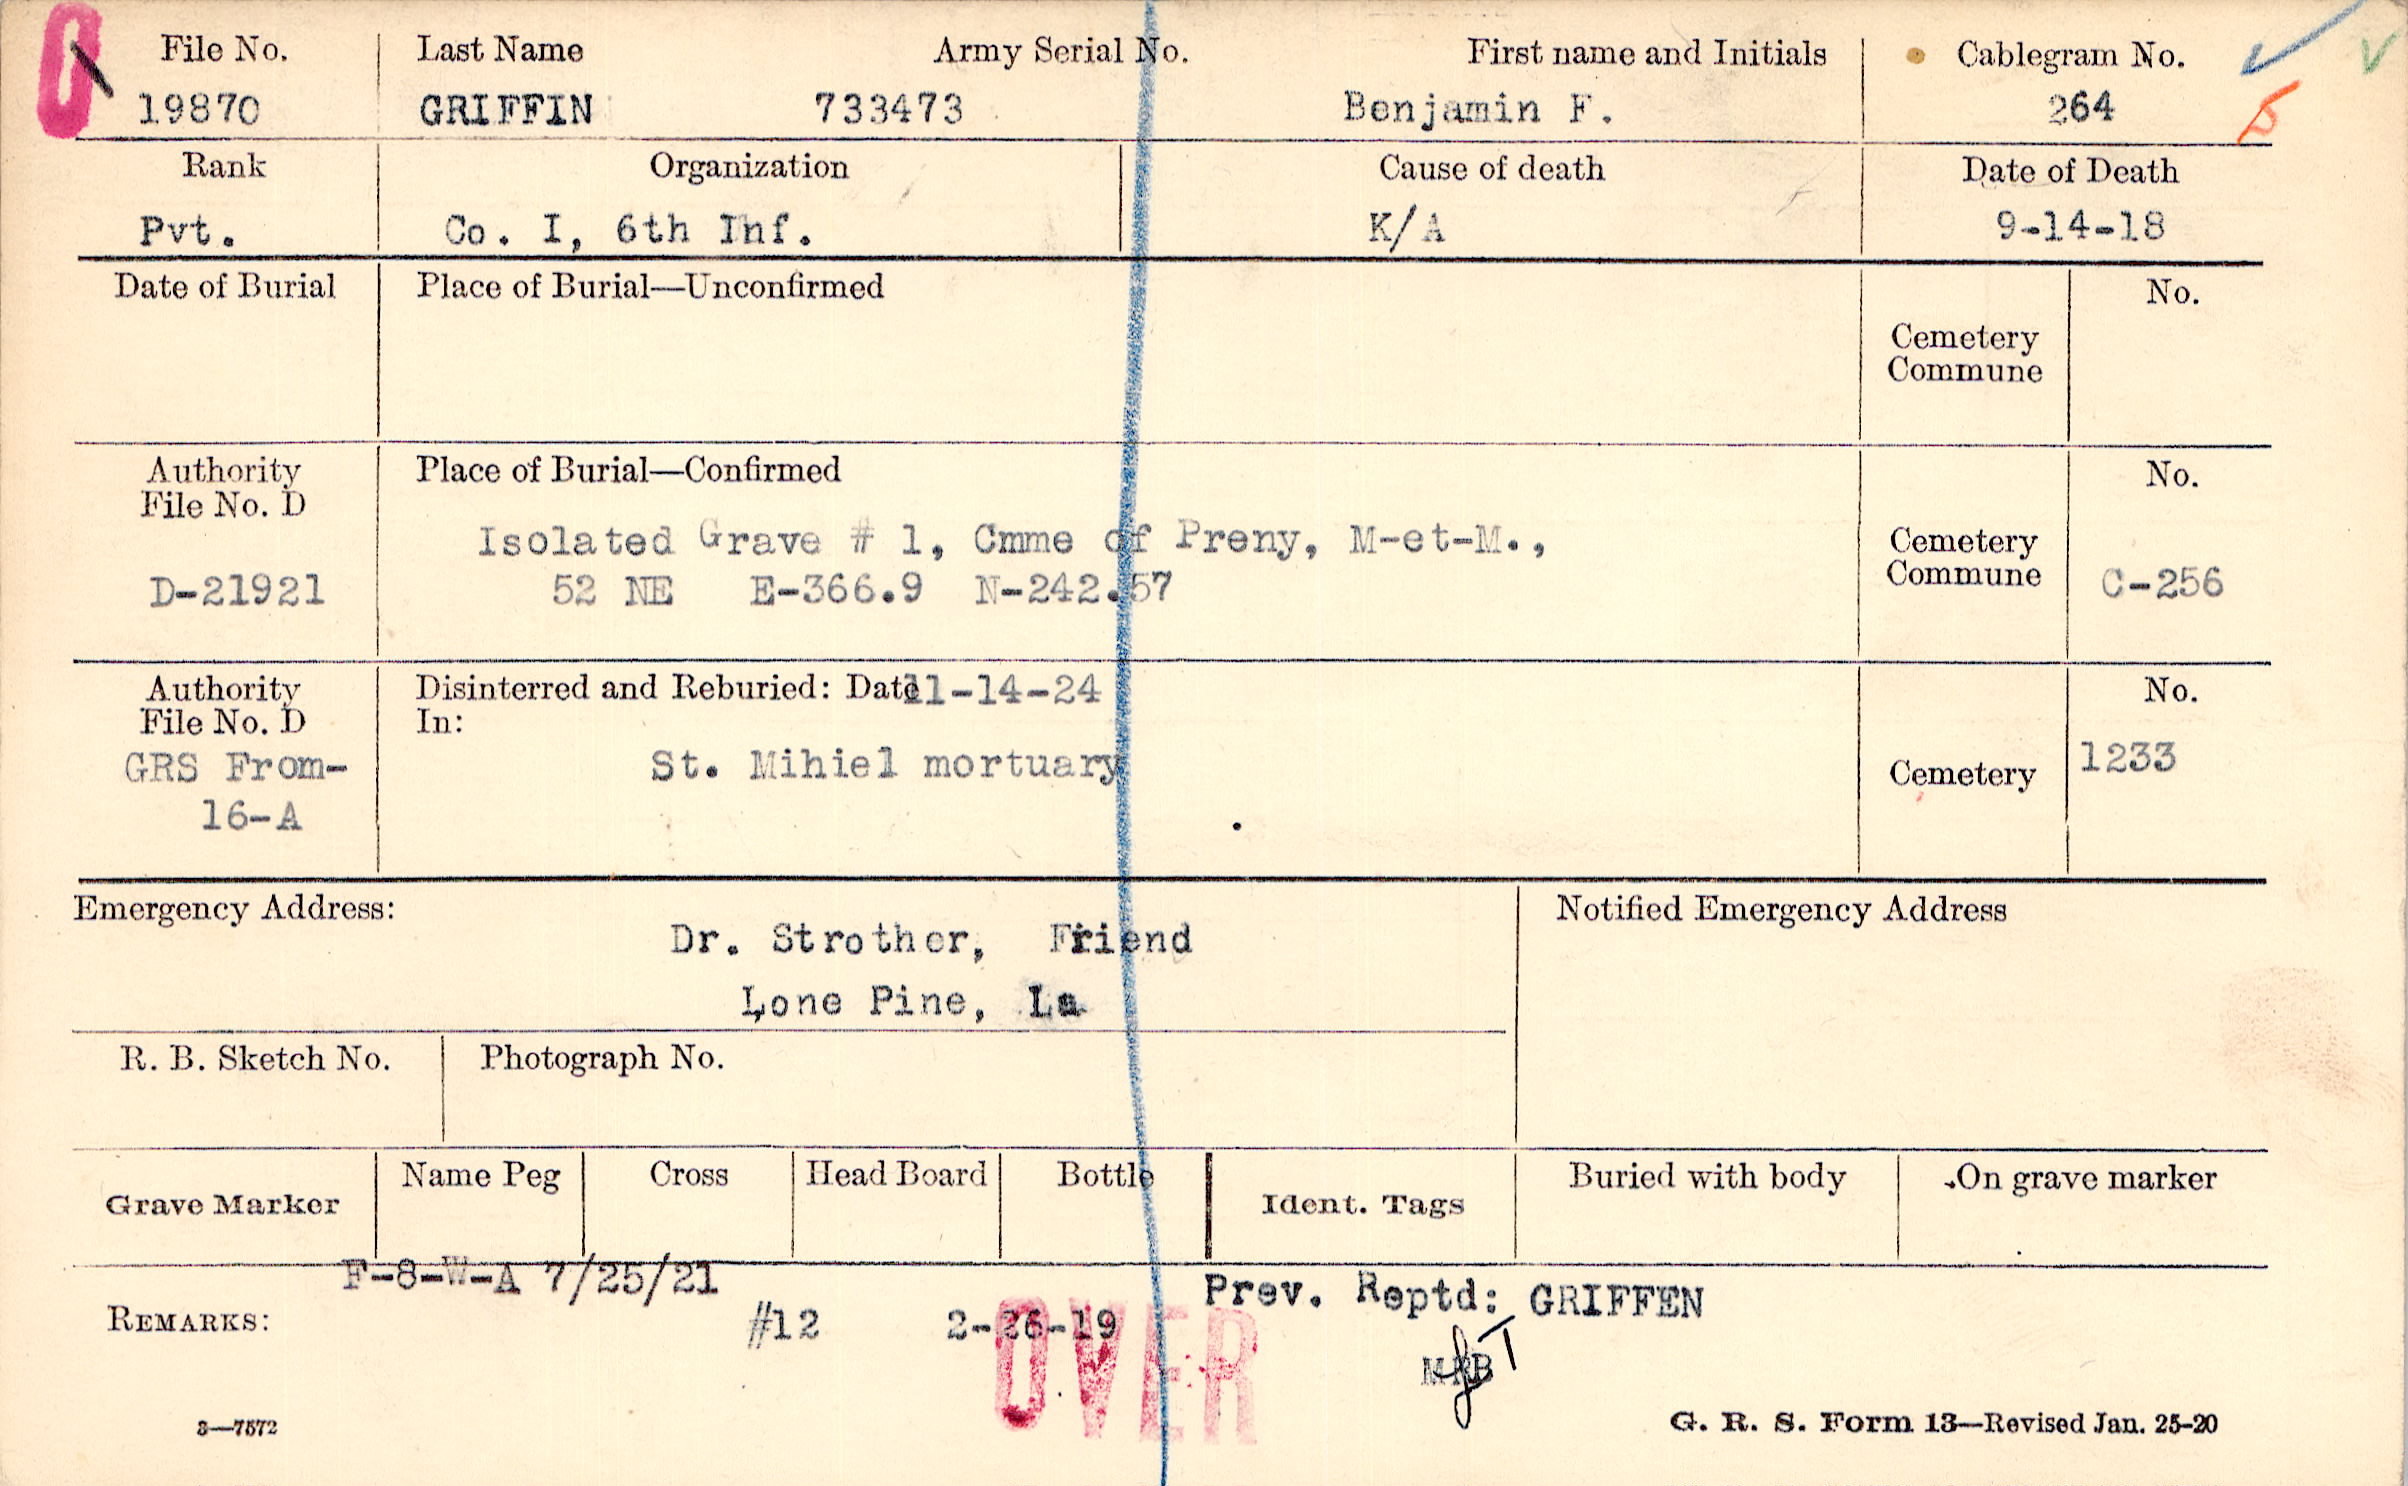 File No. Last Name Army Serial No. First name and Initials Cablegram No.
19870 GRIFFIN 733473 Benjamin F. 264
Rank Organization Cause of death Date of Death
Pvt. Co. I, 6th Inf. K/A 9-14-18
Date of Burial Place of Burial—Unconfirmed No.
Cemetery
Commune
Authority Place of Burial—Confirmed No.
File No. D
Isolated Grave # 1, Cmme of Preny, M-et-M., Cemetery
D-21921 52 NE E-366.9 N-242.57 Commune C-256
Authority Disinterred and Reburied: Date 11-14-24 No.
File No. D In:
GRS From- St. Mihiel mortuary Cemetery 1233
16-A
Emergency Address: Notified Emergency Address
Dr. Strother, Friend
Lone Pine, La
R. B. Sketch No. Photograph No.
Grave Marker Name Peg Cross Head Board Bottle Ident. Tags Buried with body On grave marker
F-8-W-A 7/25/21
REMARKS: #12 2-26-19 Prev. Reptd: GRIFFEN
OVER MRB
3—7572 G. R. S. Form 13—Revised Jan. 25-20